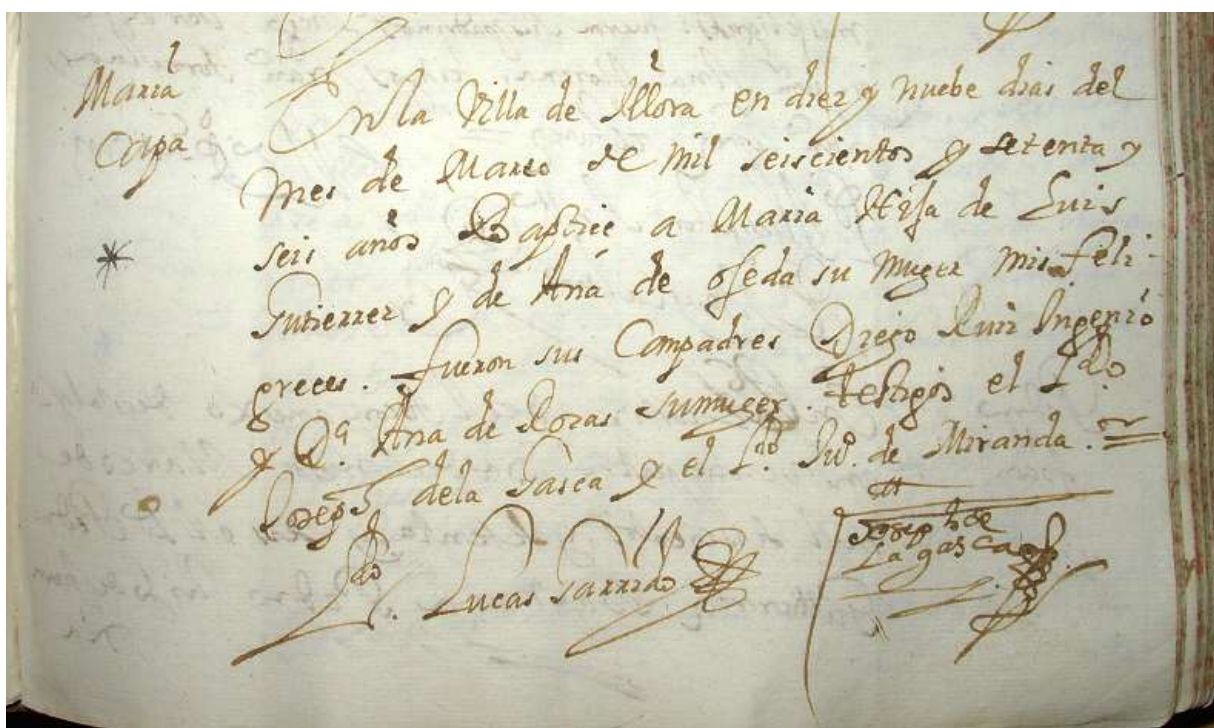 Maria
En la Villa de Illora en diez y nuebe dias del
mes de Marzo de mil seiscientos y setenta y
seis años Bapticé a Maria Hija de Luis
Gutierrez y de Ana de ojeda su muger mis feli-
greces. fueron sus Compadres Diego Ruiz
y Dª. Ana de Rozas su muger. testigos el Ldo.
Joseph de la Gasca y el Ldo. Juº. de Miranda.
Ldo. Lucas Garrido
Joseph de
La gasca